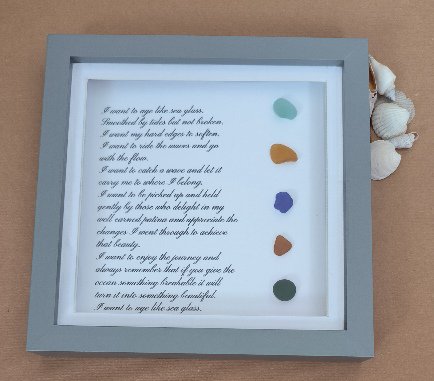 I want to age like sea glass.
Smoothed by tides but not broken.
I want my hard edges to soften.
I want to ride the waves and go
with the flow.
I want to catch a wave and let it
carry me to where I belong.
I want to be picked up and held
gently by those who delight in my
well earned patina and appreciate the
changes I went through to achieve
that beauty.
I want to enjoy the journey and
always remember that if you give the
ocean something breakable it will
turn it into something beautiful.
I want to age like sea glass.